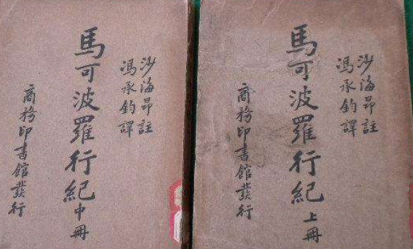 沙海昂註
馮承鈞譯
馬可波羅行紀上冊
商務印書館發行
沙海昂註
馮承鈞譯
馬可波羅行紀中冊
商務印書館發行